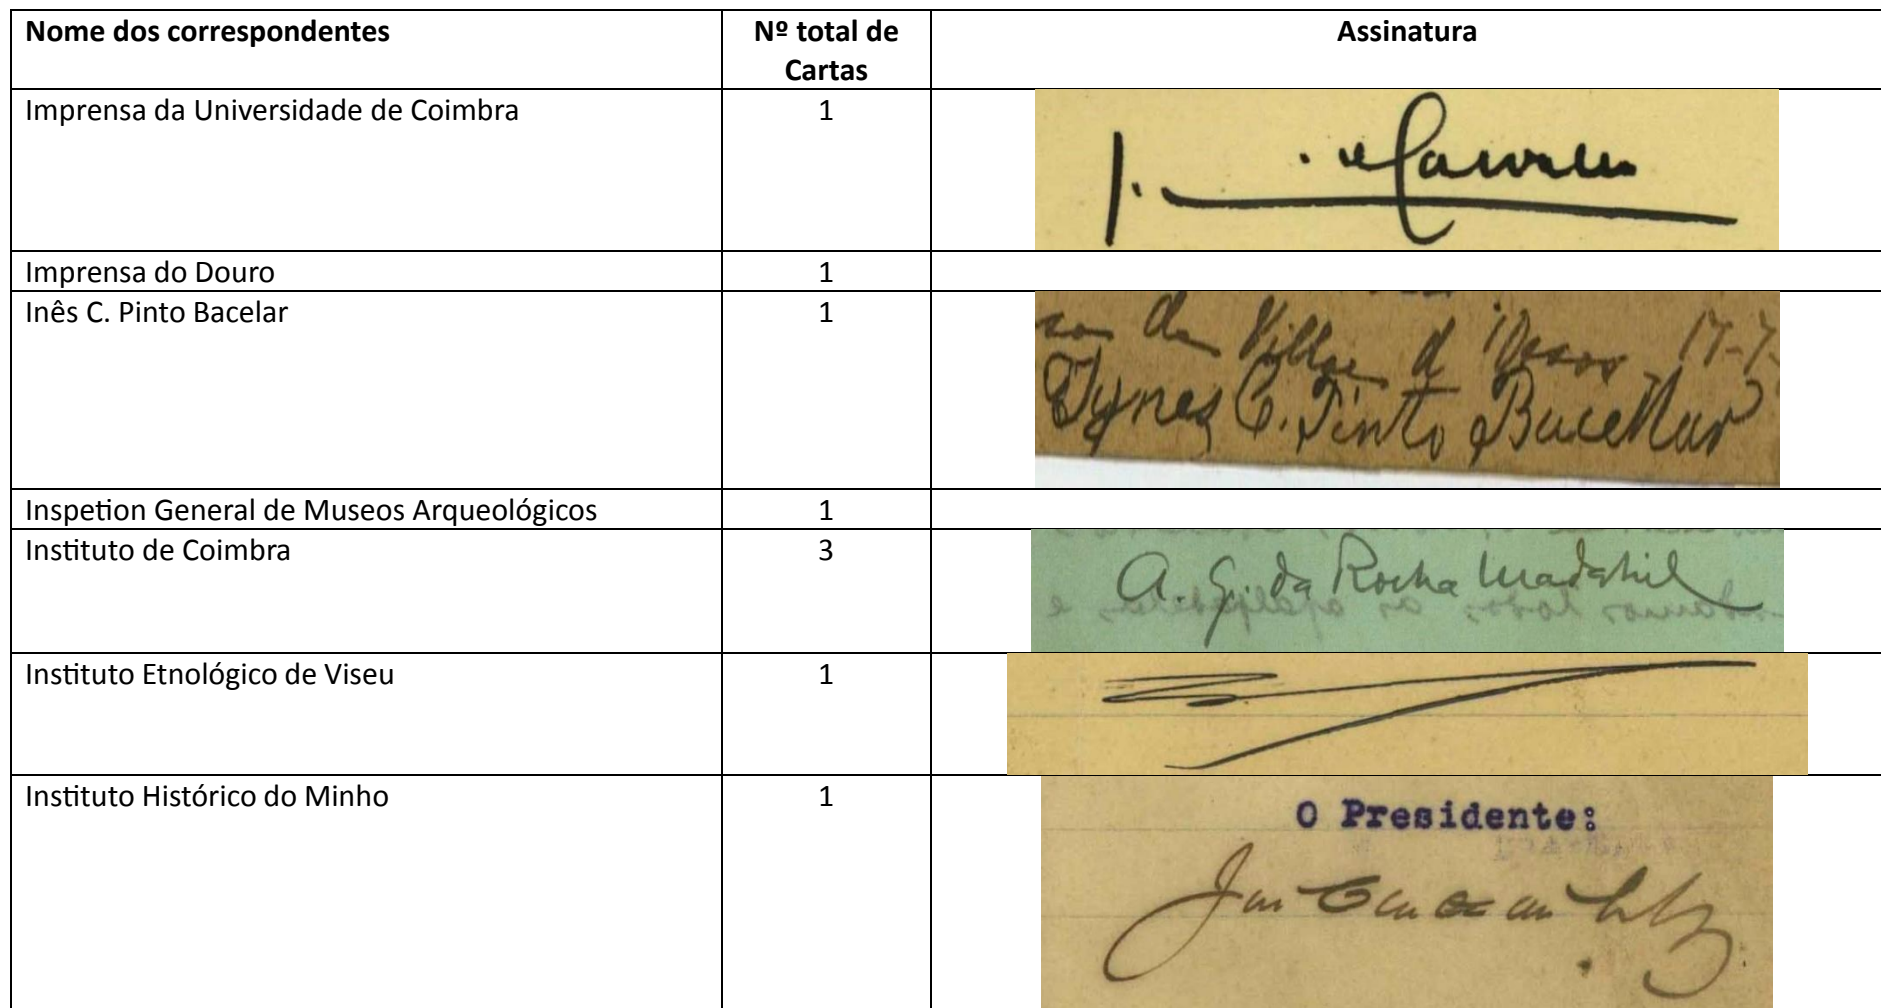 Nome dos correspondentes
Nº total de Cartas
Assinatura
Imprensa da Universidade de Coimbra 1
Imprensa do Douro 1
Inês C. Pinto Bacelar 1
17-7-
Ignes C. Pinto Bacellar
Inspetion General de Museos Arqueológicos 1
Instituto de Coimbra 3
A. G. da Rocha Madahil
Instituto Etnológico de Viseu 1
Instituto Histórico do Minho 1
O Presidente: